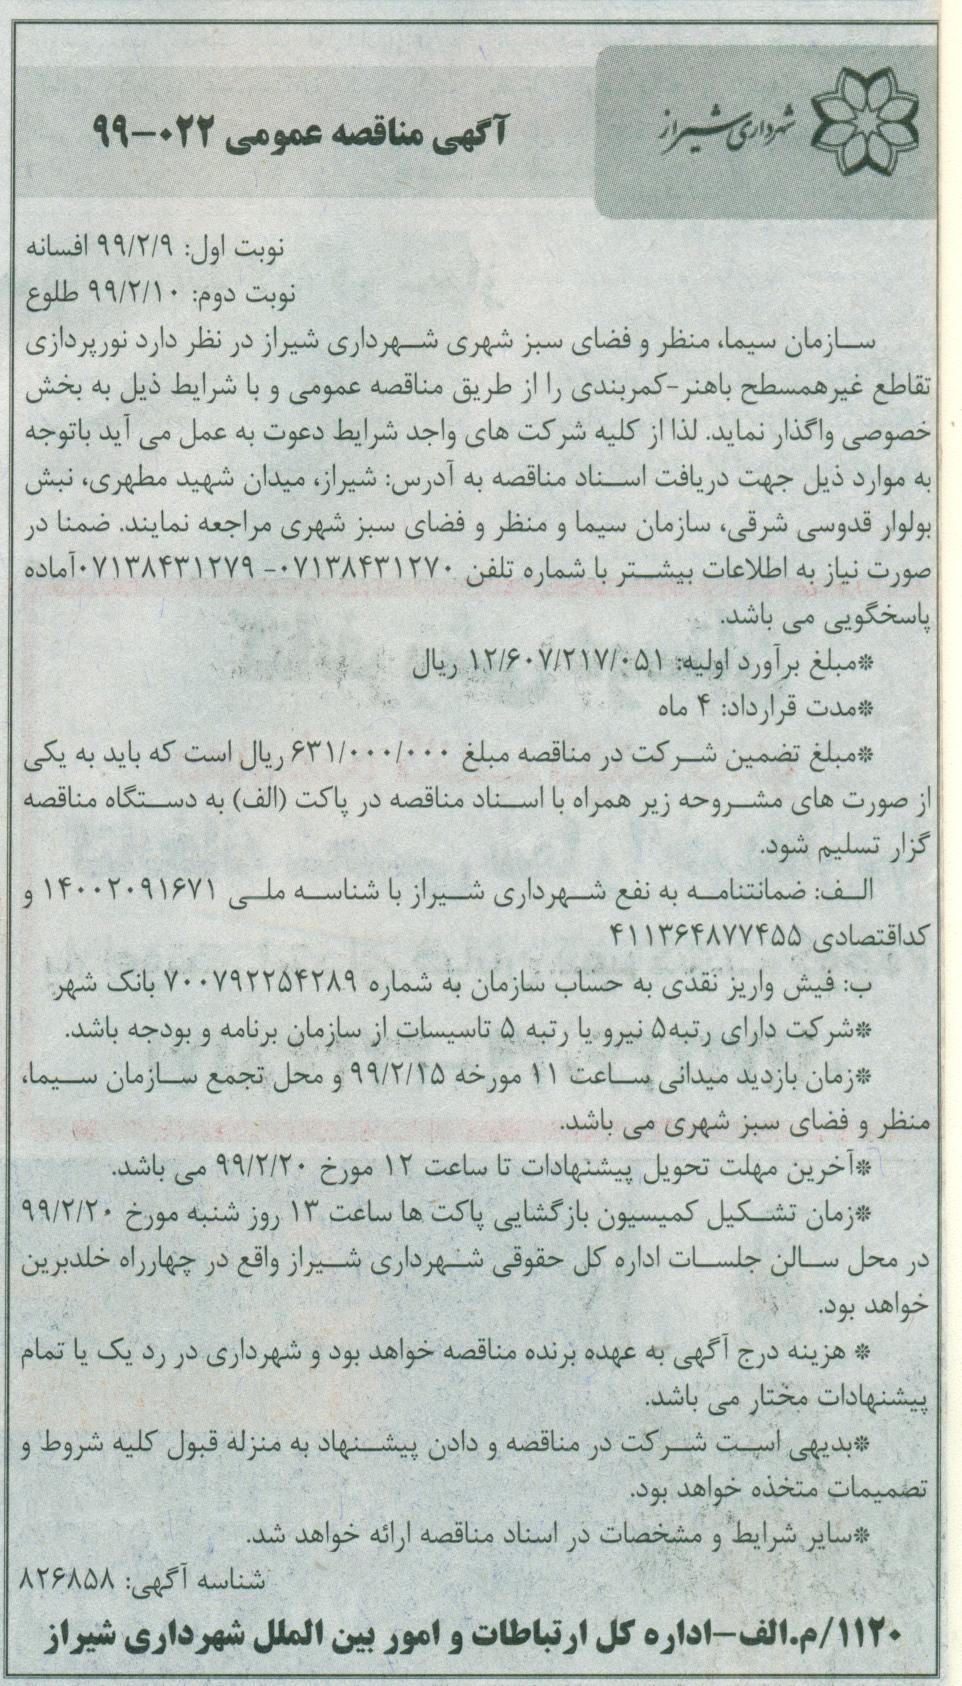 شهرداری شیراز
آگهی مناقصه عمومی ۰۲۲-۹۹
نوبت اول: ۹۹/۲/۹ افسانه
نوبت دوم: ۹۹/۲/۱۰ طلوع
سازمان سیما، منظر و فضای سبز شهری شهرداری شیراز در نظر دارد نورپردازی
تقاطع غیرهمسطح باهنر-کمربندی را از طریق مناقصه عمومی و با شرایط ذیل به بخش
خصوصی واگذار نماید. لذا از کلیه شرکت های واجد شرایط دعوت به عمل می آید باتوجه
به موارد ذیل جهت دریافت اسناد مناقصه به آدرس: شیراز، میدان شهید مطهری، نبش
بولوار قدوسی شرقی، سازمان سیما و منظر و فضای سبز شهری مراجعه نمایند. ضمنا در
صورت نیاز به اطلاعات بیشتر با شماره تلفن ۰۷۱۳۸۴۳۱۲۷۰- ۰۷۱۳۸۴۳۱۲۷۹آماده
پاسخگویی می باشد.
*مبلغ برآورد اولیه: ۱۲/۶۰۷/۲۱۷/۰۵۱ ریال
*مدت قرارداد: ۴ ماه
*مبلغ تضمین شرکت در مناقصه مبلغ ۶۳۱/۰۰۰/۰۰۰ ریال است که باید به یکی
از صورت های مشروحه زیر همراه با اسناد مناقصه در پاکت (الف) به دستگاه مناقصه
گزار تسلیم شود.
الف: ضمانتنامه به نفع شهرداری شیراز با شناسه ملی ۱۴۰۰۲۰۹۱۶۷۱ و
کداقتصادی ۴۱۱۳۶۴۸۷۷۴۵۵
ب: فیش واریز نقدی به حساب سازمان به شماره ۷۰۰۷۹۲۲۵۴۲۸۹ بانک شهر
*شرکت دارای رتبه۵ نیرو یا رتبه ۵ تاسیسات از سازمان برنامه و بودجه باشد.
*زمان بازدید میدانی ساعت ۱۱ مورخه ۹۹/۲/۱۵ و محل تجمع سازمان سیما،
منظر و فضای سبز شهری می باشد.
*آخرین مهلت تحویل پیشنهادات تا ساعت ۱۲ مورخ ۹۹/۲/۲۰ می باشد.
*زمان تشکیل کمیسیون بازگشایی پاکت ها ساعت ۱۳ روز شنبه مورخ ۹۹/۲/۲۰
در محل سالن جلسات اداره کل حقوقی شهرداری شیراز واقع در چهارراه خلدبرین
خواهد بود.
* هزینه درج آگهی به عهده برنده مناقصه خواهد بود و شهرداری در رد یک یا تمام
پیشنهادات مختار می باشد.
*بدیهی است شرکت در مناقصه و دادن پیشنهاد به منزله قبول کلیه شروط و
تصمیمات متخذه خواهد بود.
*سایر شرایط و مشخصات در اسناد مناقصه ارائه خواهد شد.
شناسه آگهی: ۸۲۶۸۵۸
۱۱۲۰/م.الف-اداره کل ارتباطات و امور بین الملل شهرداری شیراز